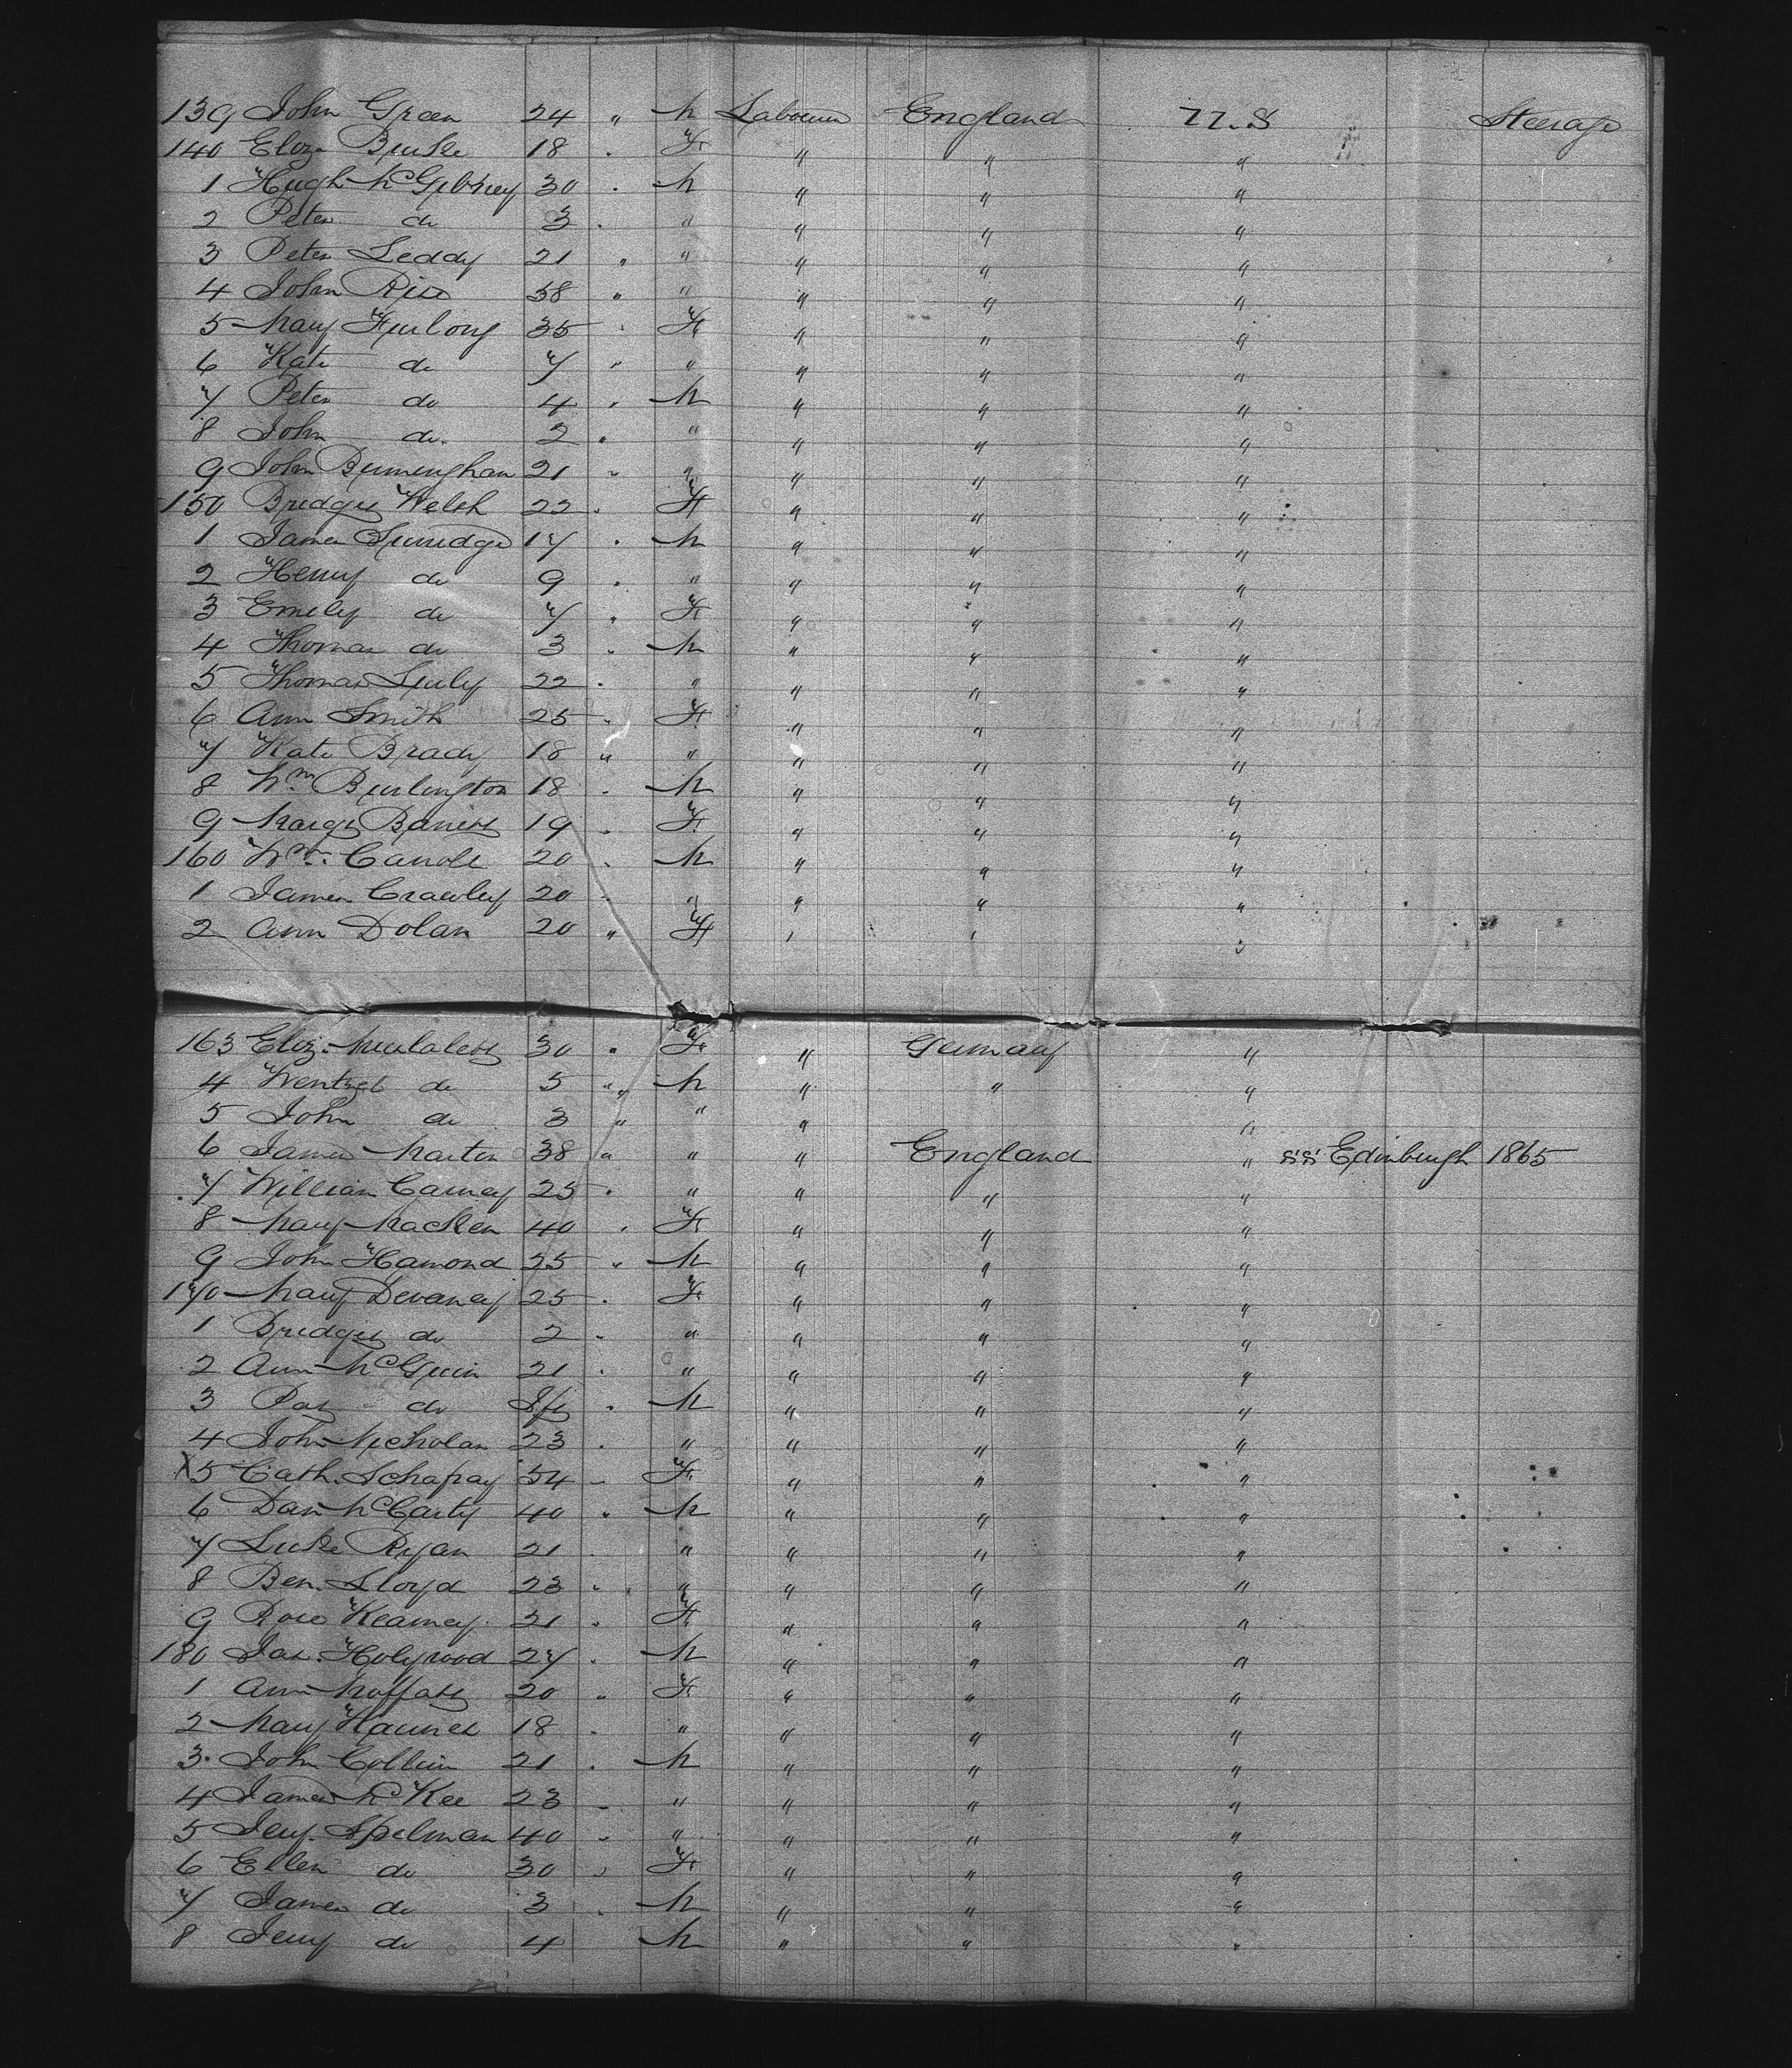 139 John Green 24 " M Labourer England U.S Steerage
140 Eliza Burke 18 " F " " "
1 Hugh McGibney 30 " M " " "
2 Peter do 3 " " " " "
3 Peter Leddy 21 " " " " "
4 John Rice 38 " " " " "
5 Mary Furlong 35 " F " " "
6 Kate do 7 " " " " "
7 Peter do 4 " M " " "
8 John do 2 " " " " "
9 John Bermingham 21 " " " " "
150 Bridget Welsh 22 " F " " "
1 James 17 " M " " "
2 Henry do 9 " " " " "
3 Emily do 7 " F " " "
4 Thomas do 3 " M " " "
5 Thomas 22 " " " " "
6 Ann Smith 25 " F " " "
7 Kate Brady 18 " " " " "
8 Wm Burlington 18 " M " " "
9 Margt 19 " F " " "
160 Wm. Carroll 20 " M " " "
1 James Crawley 20 " " " " "
2 Ann Dolan 20 " F " " "
163 Eliz. 30 " F " Germany "
4 Wentzel do 5 " M " " "
5 John do 3 " " " "
6 James Martin 38 " " " England " SS Edinburgh 1865
7 William Carney 25 " " " " "
8 Mary Macken 40 " F " " "
9 John Hamond 25 " M " " "
170 Mary Devaney 25 " F " " "
1 Bridget do 2 " " " " "
2 Ann McGuin 21 " " " " "
3 Pat do Inft " M " " "
4 John Nicholas 23 " " " " "
X5 Cath. 54 " F " " "
6 Dan McCarty 40 " M " " "
7 Luke Ryan 21 " " " " "
8 Ben. Lloyd 23 " " " " "
9 Rose Kearney 21 " F " " "
180 Jas. Holywood 27 " M " " "
1 Ann Moffatt 20 " F " " "
2 Mary 18 " " " " "
3 John Collins 21 " M " " "
4 James McKee 23 " " " " "
5 Jerry. Spelman 40 " " " " "
6 Ellen do 30 " F " " "
7 James do 3 " M " " "
8 Jerry do 4 M " " "